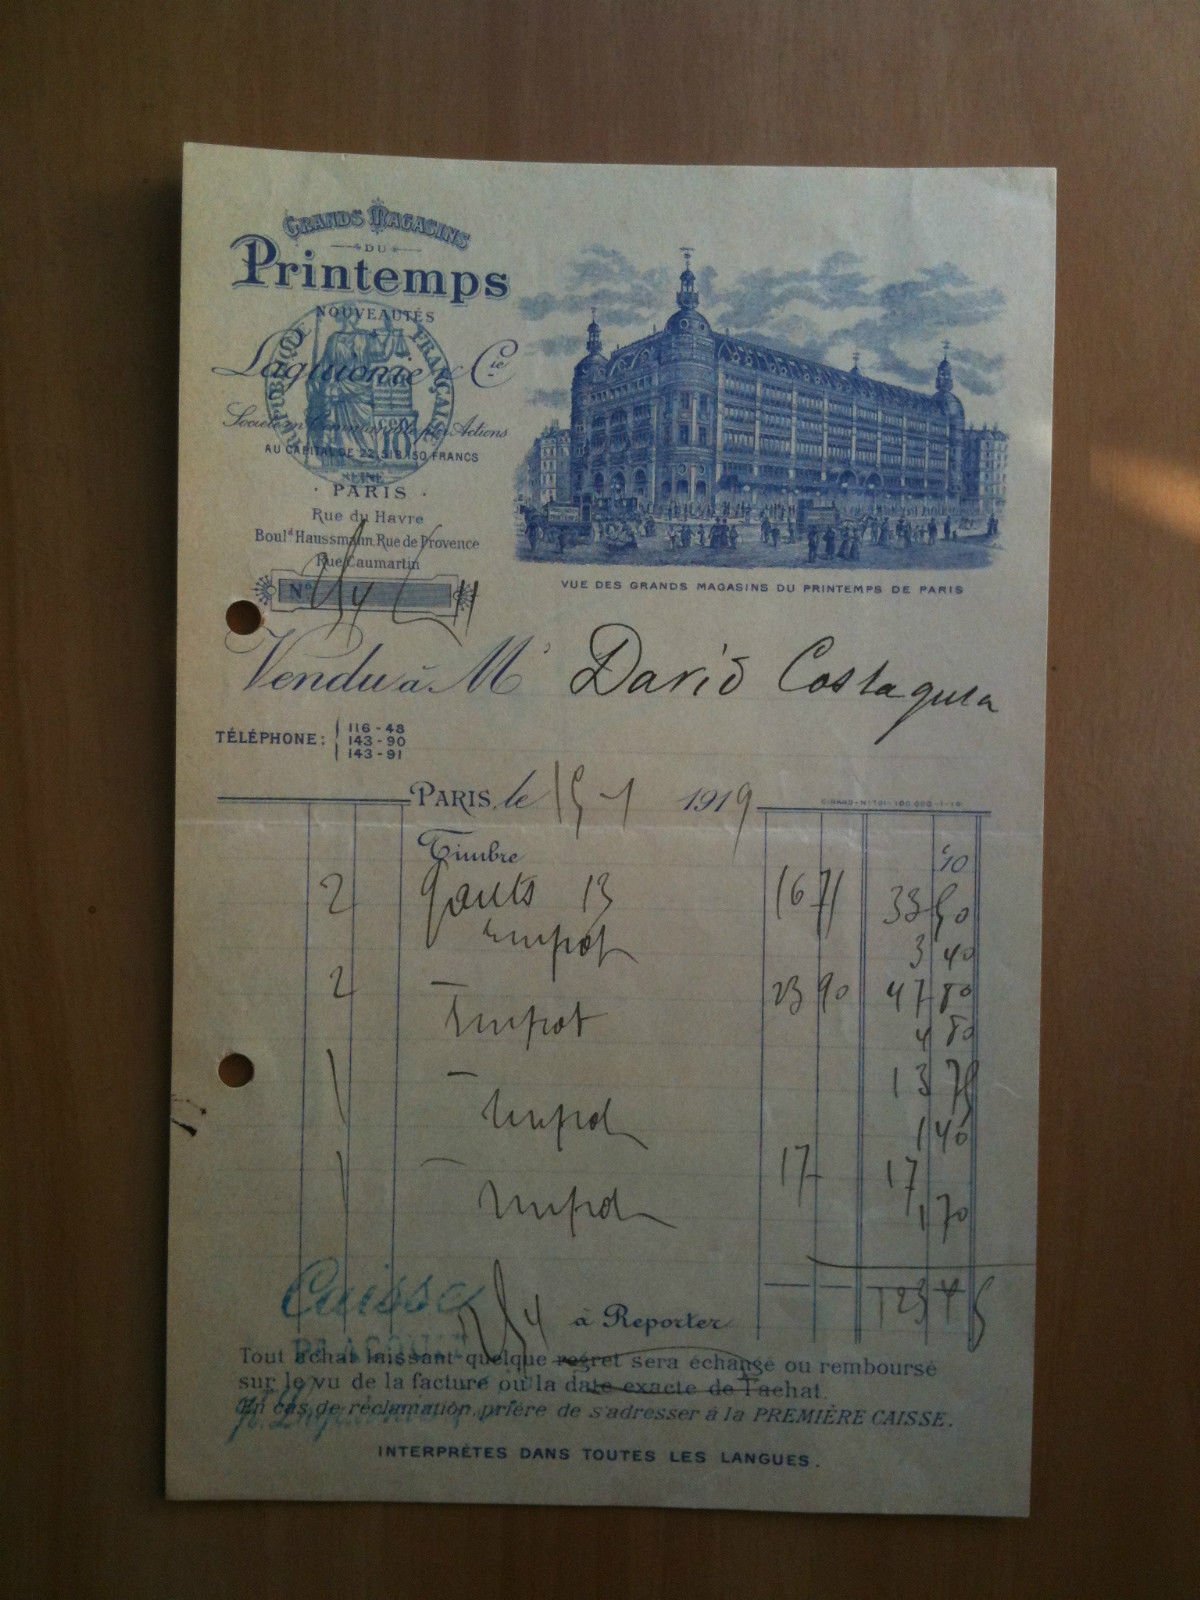 GRANDS MAGASINS
DU
Printemps
NOUVEAUTÉS
RÉPUBLIQUE FRANÇAISE
Laguionie & Cie
Société en Commandite par Actions
AU CAPITAL DE FRANCS
SEINE
· PARIS ·
Rue du Havre
Boulᵈ Haussmann, Rue de Provence
Rue Caumartin
VUE DES GRANDS MAGASINS DU PRINTEMPS DE PARIS
No
Vendu à M David Costaguta
TÉLÉPHONE: 116-48
143-90
143-91
PARIS, le 15-1 1919
Timbre "10
2 gants 13 16 33 50
Impot 3 40
2 — 23 90 47 80
Impot 4 80
1 — 13 75
Impot 1 40
1 — 17 17
Impot 1 70
123 45
Caisse à Reporter
Tout achat laissant quelque regret sera échangé ou remboursé
sur le vu de la facture ou la date exacte de l'achat.
En cas de réclamation, prière de s'adresser à la PREMIÈRE CAISSE.
INTERPRÈTES DANS TOUTES LES LANGUES.